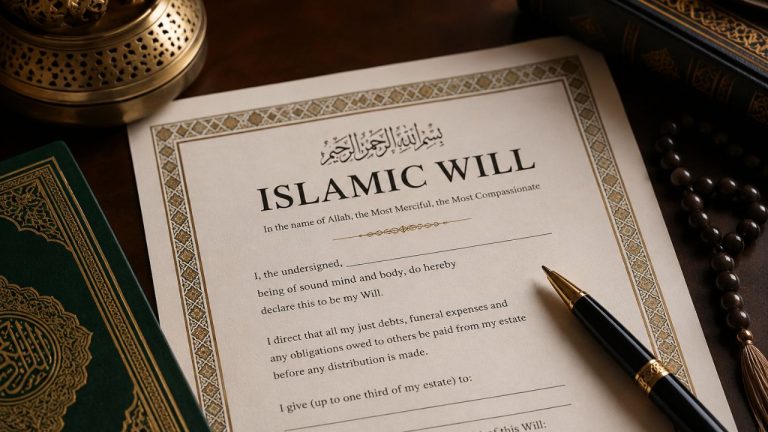 بِسْمِ اللهِ الرَّحْمٰنِ الرَّحِيْمِ
ISLAMIC WILL
In the name of Allah, the Most Merciful, the Most Compassionate
I, the undersigned, ____________________
being of sound mind and body, do hereby
declare this to be my Will.
I direct that all my just debts, funeral expenses and
any obligations owed to others be paid from my estate
before any distribution is made.
I give (up to one third of my estate) to:
of this Will: